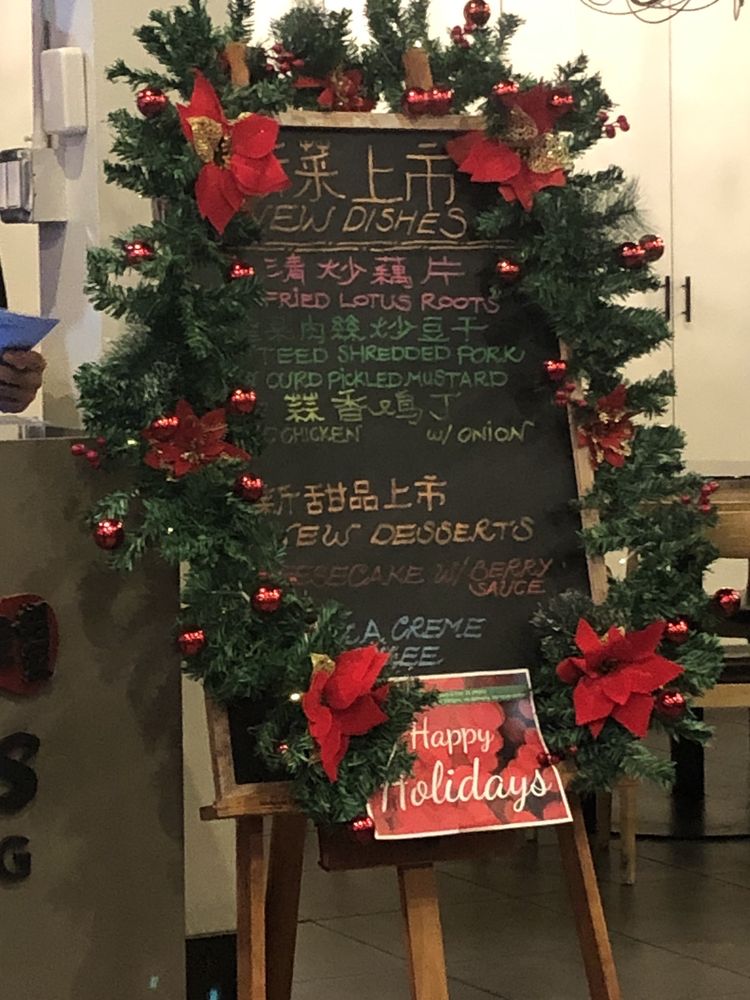 菜上市
NEW DISHES
清炒藕片
FRIED LOTUS ROOTS
菜肉絲炒豆干
TEED SHREDDED PORK
OURD PICKLED MUSTARD
蒜香鸡丁
CHICKEN w/ ONION
新甜品上市
NEW DESSERTS
ESECAKE W/ BERRY
SAUCE
LA CREME
Happy
Holidays
S
G